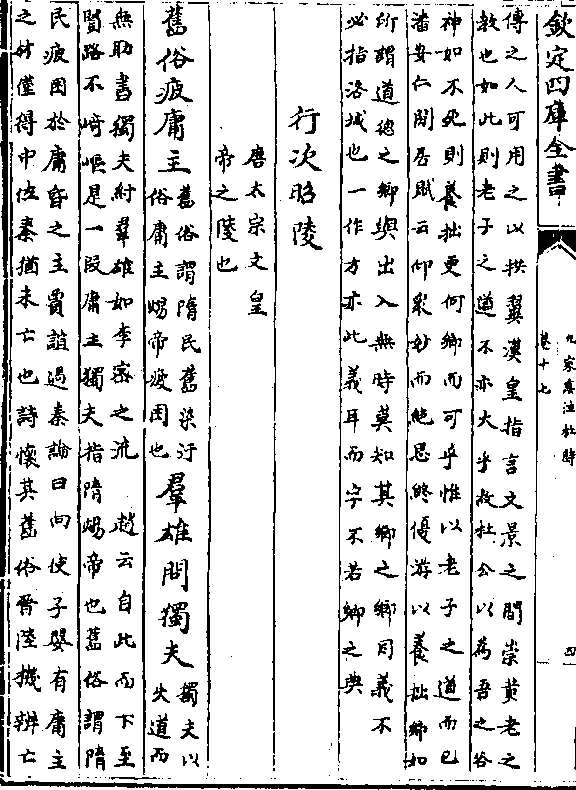 欽定四庫全書
九家集注杜詩
卷十七
四
傳之人可用之以拱翼漢皇指言文景之間崇黄老之
教也如此則老子之道不亦大乎故杜公以為吾之谷
神如不死則養拙更何鄉而可乎惟以老子之道而已
潘安仁閒居賦云仰衆妙而絶思終優游以養拙鄉如
所謂道德之鄉與出入無時莫知其鄉之鄉同義不
必指洛城也一作方亦此義耳而字不若鄉之典
行次昭陵
唐太宗文皇
帝之陵也
舊俗疲庸主
舊俗謂隋民舊染汙
俗庸主煬帝疲困也
羣雄問獨夫
獨夫以
失道而
無助書獨夫紂羣雄如李密之流 趙云自此而下至
賢路不崎嶇是一段庸主獨夫指隋煬帝也舊俗謂隋
民疲困於庸昏之主賈誼過秦論曰向使子嬰有庸主
之材僅得中佐秦猶未亡也詩懷其舊俗晉陸機辨亡